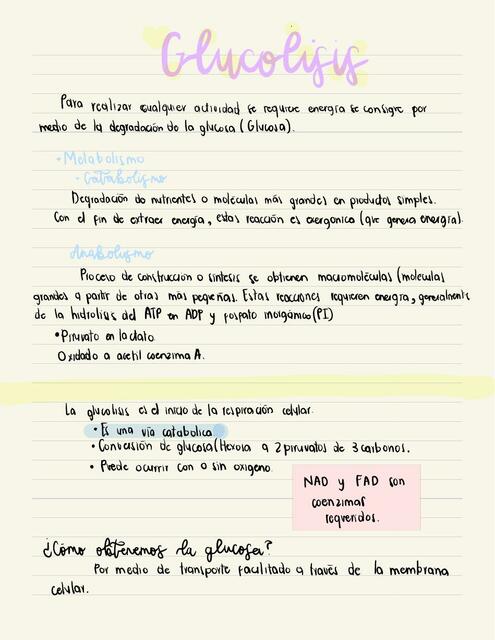 Glucolisis
Para realizar cualquier actividad se requiere energía se consigue por
medio de la degradación de la glucosa (Glucosa).
• Metabolismo
• Catabolismo
Degradación de nutrientes o moléculas más grandes en productos simples.
Con el fin de extraer energía, estas reacción es exergonica (que genera energía).
Anabolismo
Proceso de construcción o sintesis se obtienen macromoléculas (moleculas
grandes a partir de otras más pequeñas. Estas reacciones requieren energía, generalmente
de la hidrolisis del ATP en ADP y fosfato inorgánico (PI)
• Piruvato en lactato
Oxidado a acetil coenzima A.
La glucolisis es el inicio de la respiración celular.
• Es una vía catabolica
• Conversión de glucosa (Hexosa a 2 piruvatos de 3 carbonos.
• Puede ocurrir con o sin oxigeno.
NAD y FAD son
coenzimas
requeridos.
¿Cómo obtenemos la glucosa?
Por medio de transporte facilitado a través de la membrana
celular.